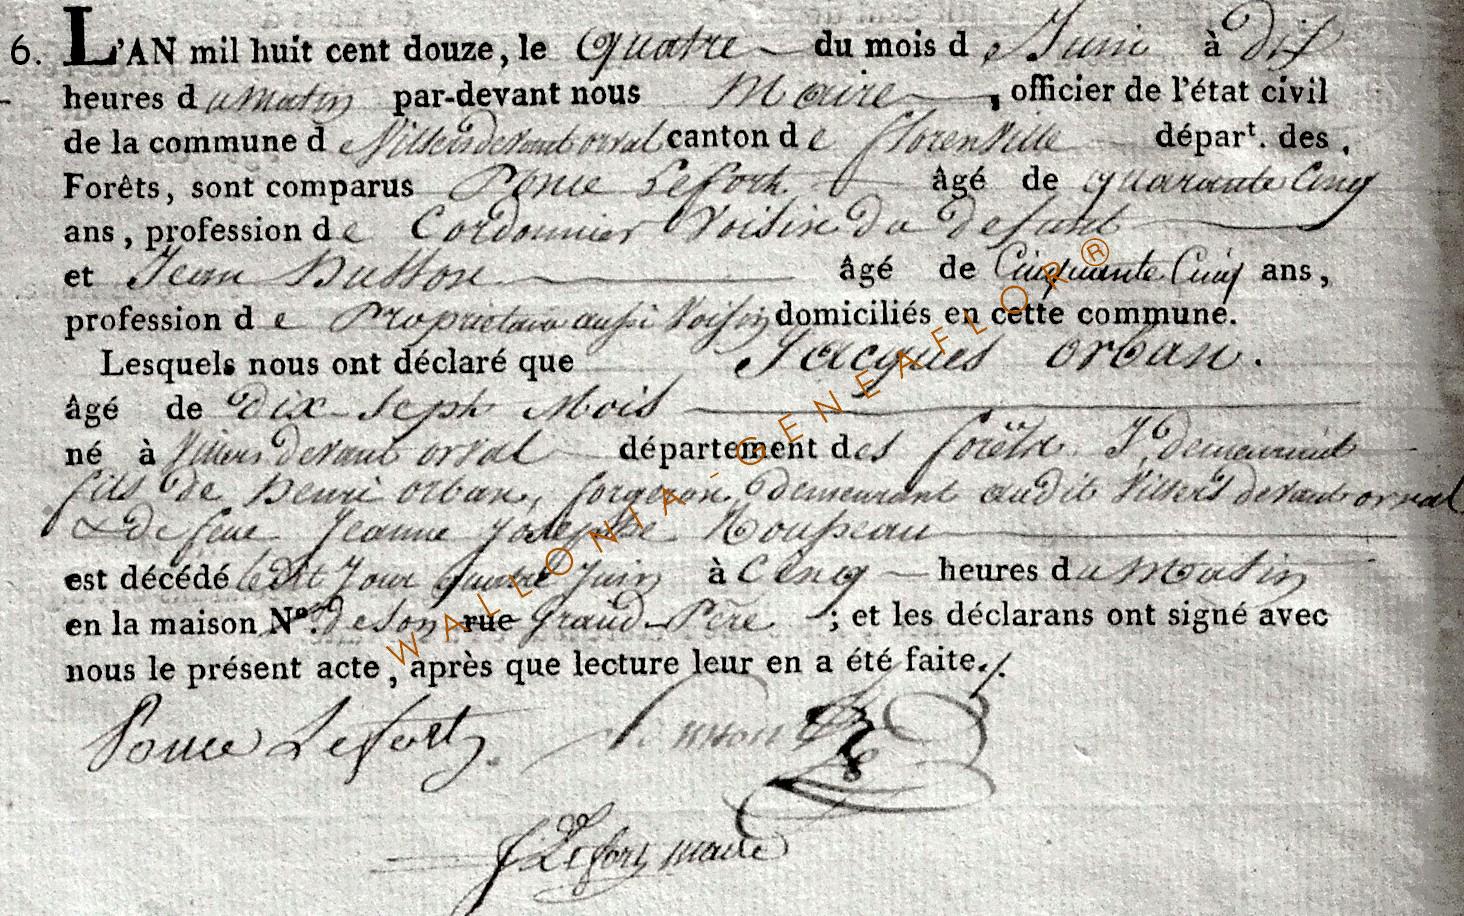 6. L'AN mil huit cent douze, le quatre du mois de Juin à dix
heures du matin par-devant nous Maire, officier de l'état civil
de la commune de Villers devant orval canton de florenville départ. des
Forêts, sont comparus Ponce Lefort âgé de quarante Cinq
ans, profession de Cordonnier Voisin du defunt
et Jean Husson âgé de Cinquante Cinq ans,
profession de Proprietaire aussi Voisin domiciliés en cette commune.
Lesquels nous ont déclaré que Jacques orban.
âgé de dix-sept Mois
né à Villers devant orval département des forêts Y demeurant
fils de henri orban, forgeron, demeurant audit Villers devant orval
& de feue Jeanne Josephe
est décédé ledit jour quatre juin à Cinq heures du Matin
en la maison N.º de son rue Grand-Père; et les déclarans ont signé avec
nous le présent acte, après que lecture leur en a été faite./.
Ponce Lefort
Lefort maire
WALLONIA-GENEAFLOR®